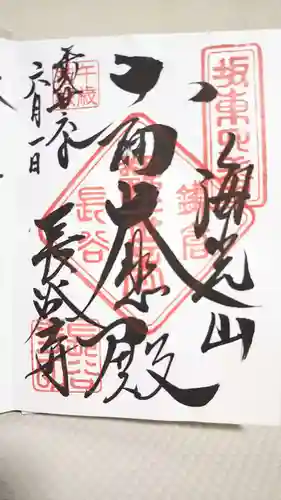 坂東四番
海光山
十一面大悲殿
鎌倉
長谷
長谷寺
午歳
六月一日